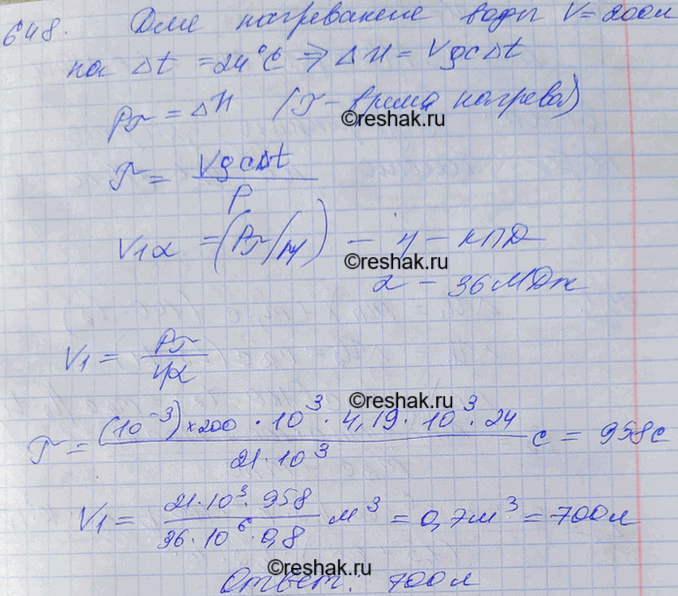 648. Для нагревание воды V = 200л
на Δt = 24°C ⇒ ΔН = VρcΔt
Pτ = ΔН (τ - время нагрева)
©reshak.ru
τ = VρcΔt / P
V₁α = (Pτ/η) - η - КПД
©reshak.ru
α - 36 МДж
V₁ = Pτ / ηα
©reshak.ru
τ = (10⁻³) × 200 · 10³ · 4,19 · 10³ · 24 / 21 · 10³ c = 958 c
V₁ = 21 · 10³ · 958 / 36 · 10⁶ · 0,8 м³ = 0,7 м³ = 700 л
©reshak.ru
Ответ: 700 л